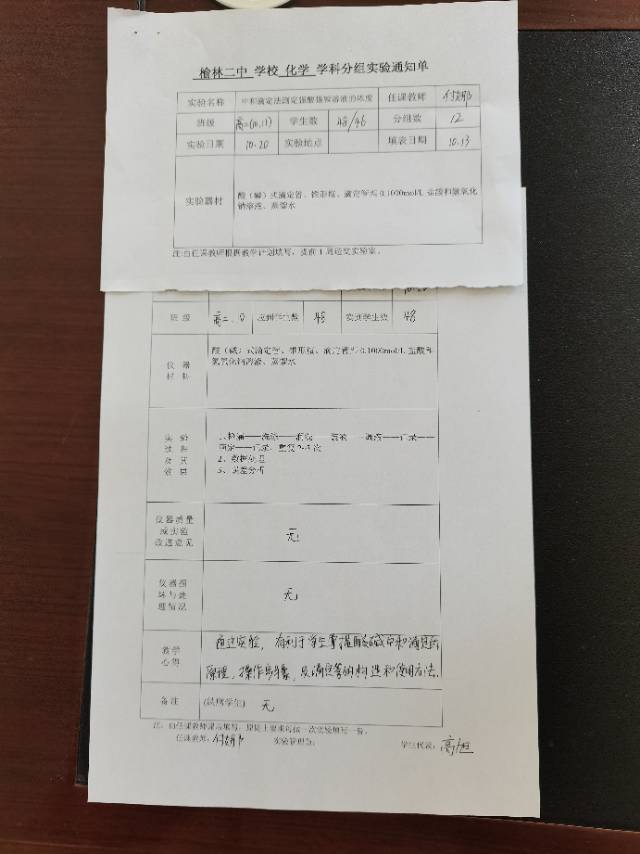 榆林二中 学校 化学 学科分组实验通知单
实验名称 中和滴定法测定强酸强碱溶液的浓度 任课教师
班级 高二(10,17) 学生数 48/46 分组数 12
实验日期 10.20 实验地点 填表日期 10.13
实验器材 酸（碱）式滴定管、锥形瓶、滴定管夹 0.1000mol/L 盐酸和氢氧化
钠溶液、蒸馏水
注:由任课教师根据教学计划填写，提前1周送交实验室。
班级 高二、 应到学生数 48 实到学生数 48
仪器
材料
酸（碱）式滴定管、锥形瓶、滴定管夹 0.1000mol/L 盐酸和
氢氧化钠溶液、蒸馏水
实验
过程
及其
效果
1、检漏——洗涤——润洗——装液——调液——记录——
滴定——记录，重复2-3次
2、数据处理
3、误差分析
仪器质量
或实验
改进意见
无
仪器损
坏与处
理情况
无
教学
心得
通过实验，有利于学生掌握酸碱中和滴定的
原理，操作步骤，及滴定管的构造和使用方法.
备注 (缺席学生) 无
注：由任课教师课后填写，原则上要求每做一次实验填写一份。
任课教师: 实验管理员: 学生代表: 高旭